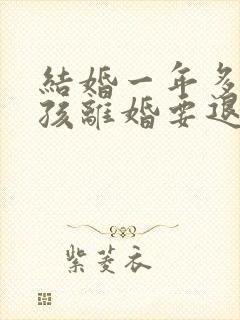 結婚一年多
孩離婚要退
紫菱衣